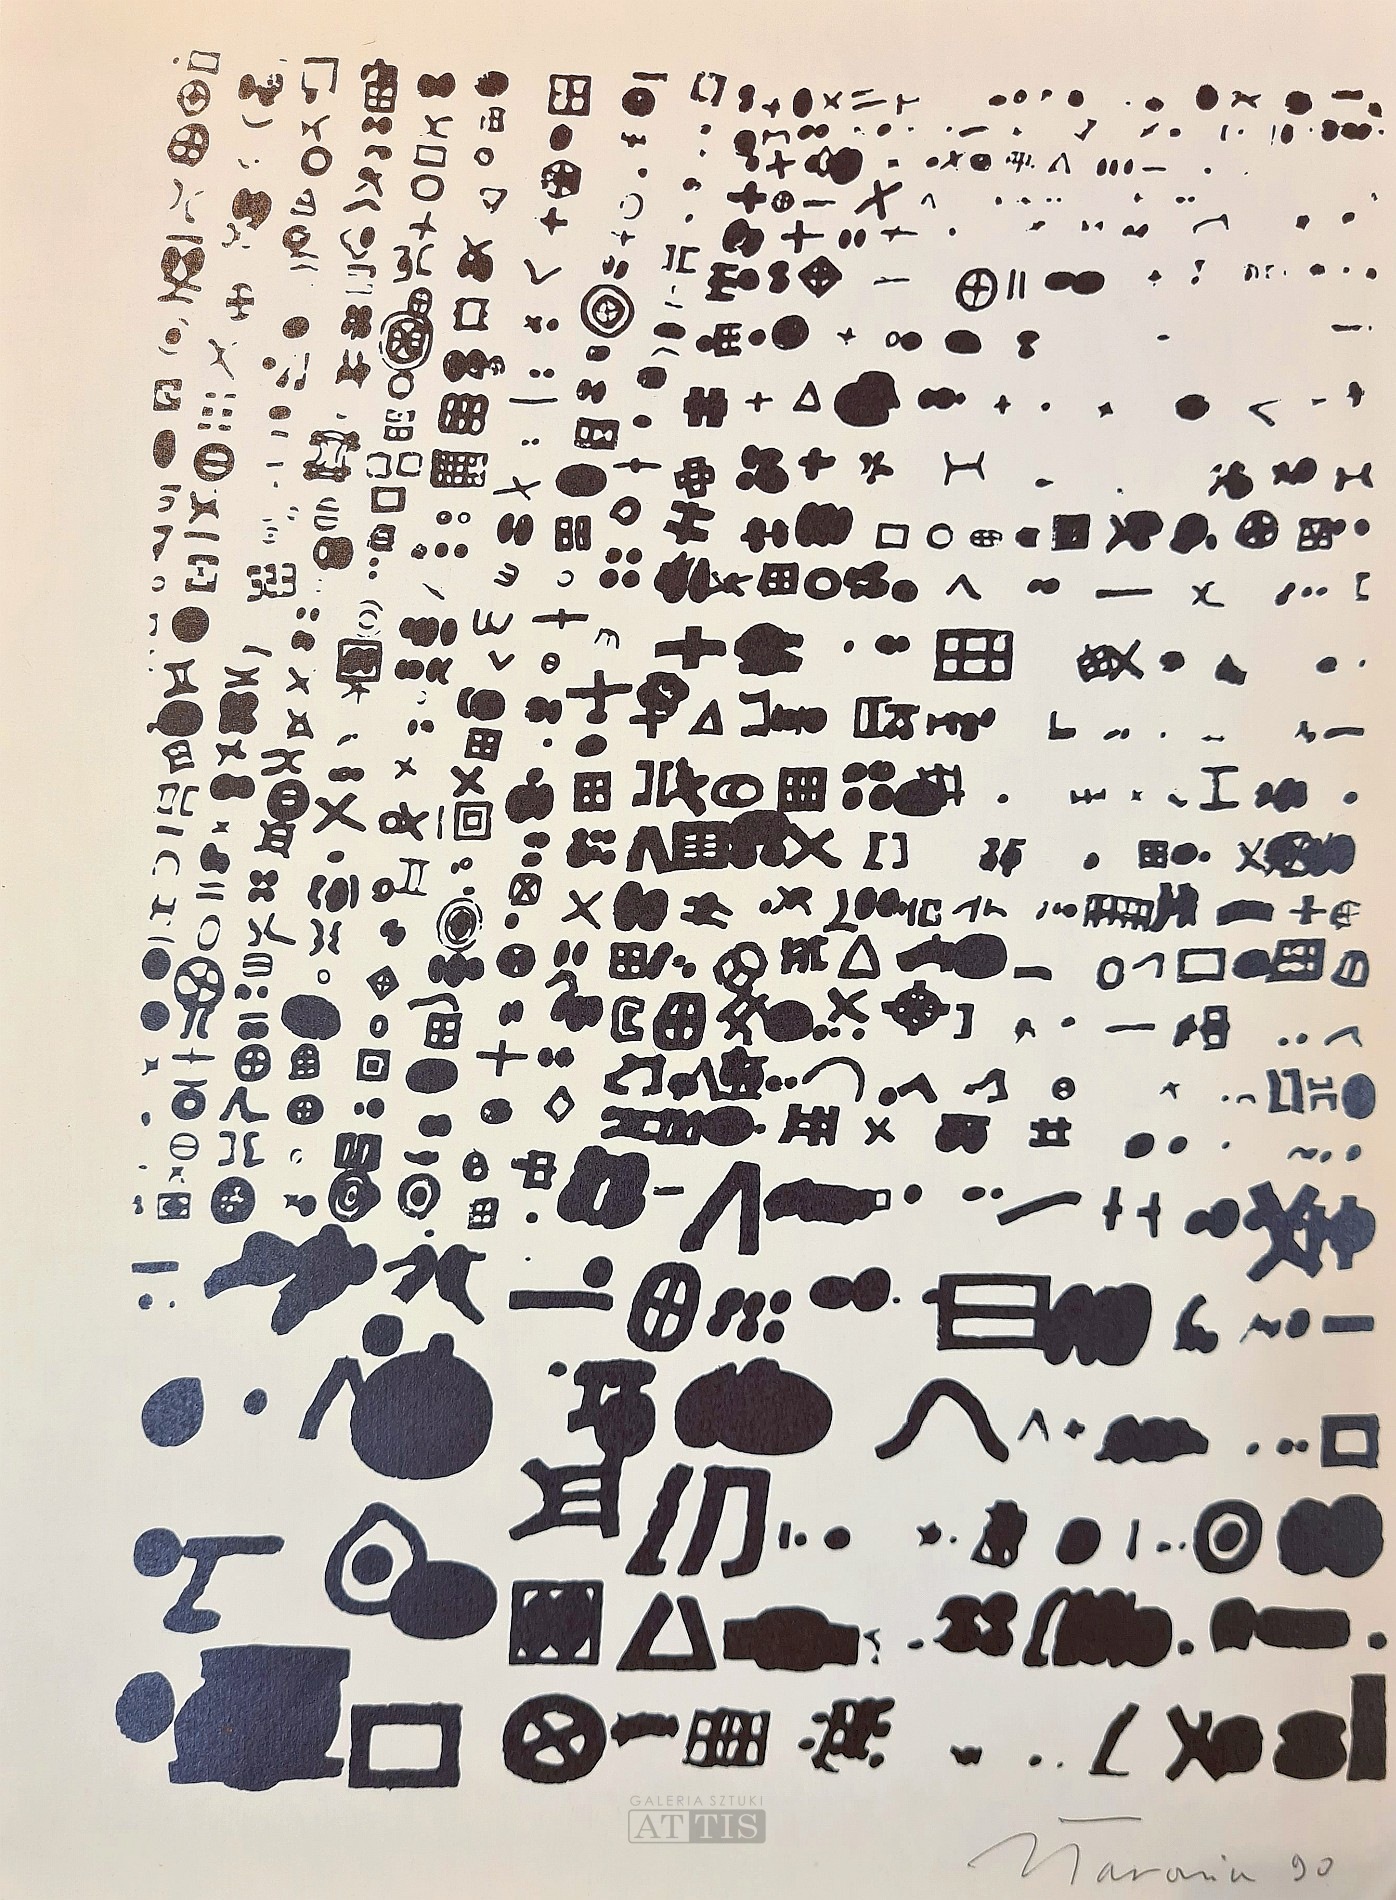 GALERIA SZTUKI
ATTIS
90